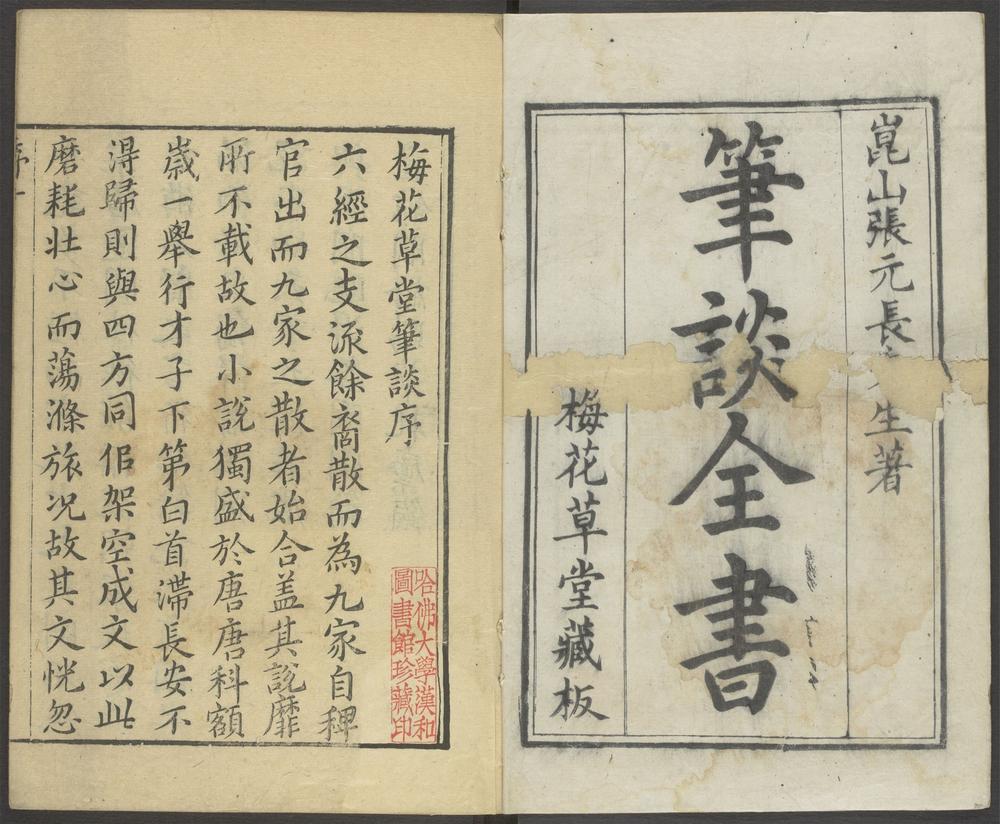 崑山張元長先生著
筆談全書
梅花草堂藏板
梅花草堂筆談序
六經之支流餘裔散而為九家自稗
官出而九家之散者始合蓋其說靡
所不載故也小說獨盛於唐唐科額
歲一舉行才子下第白首滯長安不
得歸則與四方同侶架空成文以此
磨耗壯心而蕩滌旅況故其文恍忽
哈佛大學漢和
圖書館珍藏印